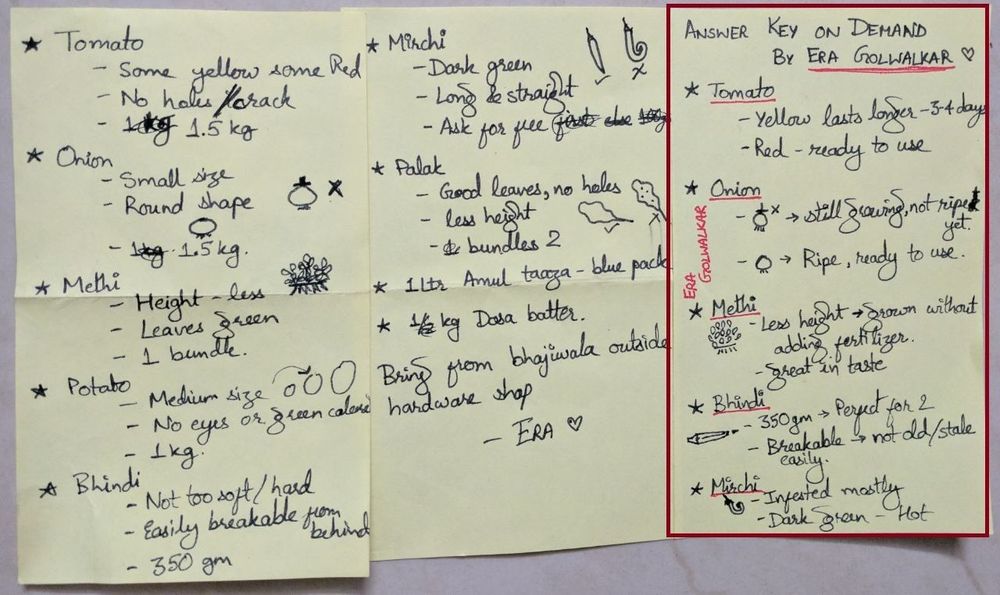 ★ Tomato
- Some yellow some Red
- No holes / crack
- 1 kg 1.5 kg
★ Onion
- Small size
- Round shape
- 1 kg 1.5 kg.
★ Methi
- Height - less
- Leaves green
- 1 bundle.
★ Potato
- Medium size
- No eyes or green
- 1 kg.
★ Bhindi
- Not too soft / hard
- Easily breakable from
behind
- 350 gm
★ Mirchi
- Dark green
- Long & straight
- Ask for free first else 100g
★ Palak
- Good leaves, no holes
- less height
- bundles 2
★ 1 ltr Amul taaza - blue pack
★ 1/2 kg Dosa batter.
Bring from bhajiwala outside
hardware shop
- ERA ♡
ANSWER KEY ON DEMAND
BY ERA GOLWALKAR ♡
★ Tomato
- Yellow lasts longer - 3-4 days
- Red - ready to use
★ Onion
- x → still growing, not ripe
yet.
- → Ripe, ready to use.
ERA
GOLWALKAR
★ Methi
- Less height → grown without
adding fertilizer.
- great in taste
★ Bhindi
- 350gm → Perfect for 2
- Breakable → not old/stale
easily.
★ Mirchi
- Infested mostly
- Dark green - Hot